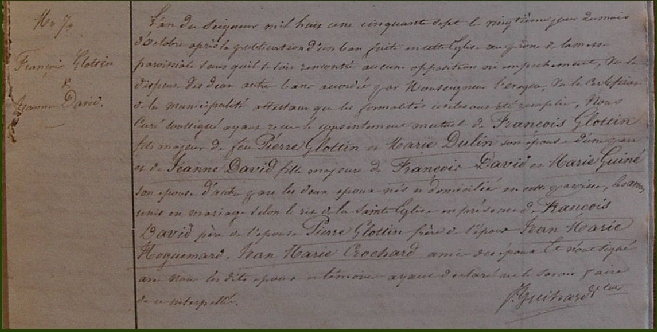 No 7.
François Glottin
&
Jeanne David.
L'an du Seigneur mil huit cent cinquante sept le vingtième jour du mois
d'octobre après la publication d'un ban faite en cette Eglise au prône de la messe
paroissiale sans qu'il se soit rencontré aucune opposition ou empêchement, vu la
dispense des deux autres bans accordée par Monseigneur l'évêque, vu le certificat
de la municipalité attestant que les formalités civiles ont été remplies, Nous
Curé soussigné ayant reçu le consentement mutuel de François Glottin
fils majeur de feu Pierre Glottin et Marie Dulin son épouse d'une part
et de Jeanne David fille majeure de François David et Marie Guiné
son épouse d'autre part les deux époux nés et domiciliés en cette paroisse, les avons
unis en mariage selon le rit de la Sainte Eglise en présence de François
David père de l'épouse Pierre Glottin frère de l'époux Jean Marie
Hoguemard, Jean Marie Crochard amis des époux le soussigné
avec nous les dits époux et témoins ayant déclaré ne le savoir faire
de ce interpellés.
J. Guihard